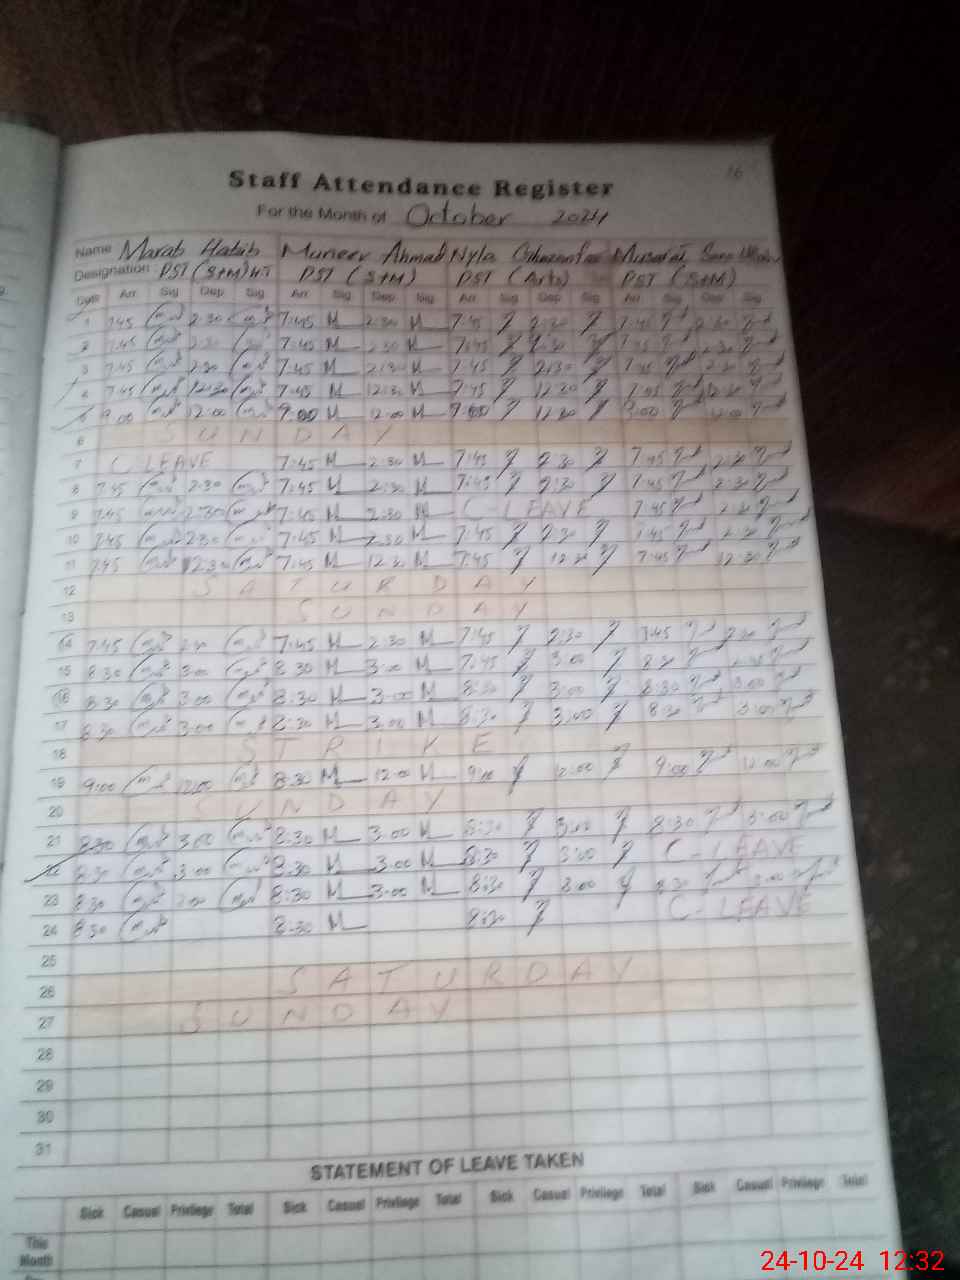 16
Staff Attendance Register
For the Month of October 2024
Name Marab Habib Muneer Ahmad Nyla Musarat
Designation PST (S+M) HT PST (S+M) PST (Arts) PST (S+M)
Date Arr Sig Dep Sig Arr Sig Dep Sig Arr Sig Dep Sig Arr Sig Dep Sig
1 7:45 2:30 7:45 M 2:30 M 7:45 2:30 7:45 2:30
2 7:45 2:30 7:45 M 2:30 M 7:45 2:30 7:45
3 7:45 2:30 7:45 M 2:30 M 7:45 2:30 7:45 2:30
4 7:45 12:30 7:45 M 12:30 M 7:45 12:30 7:45 12:30
5 9:00 12:00 9:00 M 12:00 M 9:00 9:00 12:00
6 SUNDAY
7 C.LEAVE 7:45 M 2:30 M 7:45 2:30 7:45 2:30
8 7:45 2:30 7:45 M 2:30 M 7:45 2:30 7:45 2:30
9 7:45 2:30 7:45 M 2:30 M C-LEAVE 7:45 2:30
10 7:45 2:30 7:45 M 2:30 M 7:45 2:30 7:45 2:30
11 7:45 12:30 7:45 M 12:30 M 7:45 12:30 7:45 12:30
12 SATURDAY
13 SUNDAY
14 7:45 2:30 7:45 M 2:30 M 7:45 2:30 7:45 2:30
15 8:30 3:00 8:30 M 3:00 M 7:45 3:00 8:30
16 8:30 3:00 8:30 M 3:00 M 8:30 3:00 8:30 3:00
17 8:30 3:00 8:30 M 3:00 M 8:30 3:00 8:30 3:00
18 STRIKE
19 9:00 12:00 8:30 M 12:00 M 9:00 12:00 9:00 12:00
20 SUNDAY
21 8:30 3:00 8:30 M 3:00 M 8:30 3:00 8:30 3:00
22 8:30 3:00 8:30 M 3:00 M 8:30 3:00 C-LEAVE
23 8:30 3:00 8:30 M 3:00 M 8:30 3:00 8:30 3:00
24 8:30 8:30 M 8:30 C-LEAVE
25
26 SATURDAY
27 SUNDAY
28
29
30
31
STATEMENT OF LEAVE TAKEN
Sick Casual Privilege Total Sick Casual Privilege Total Sick Casual Privilege Total Sick Casual Privilege Total
This
Month
24-10-24 12:32